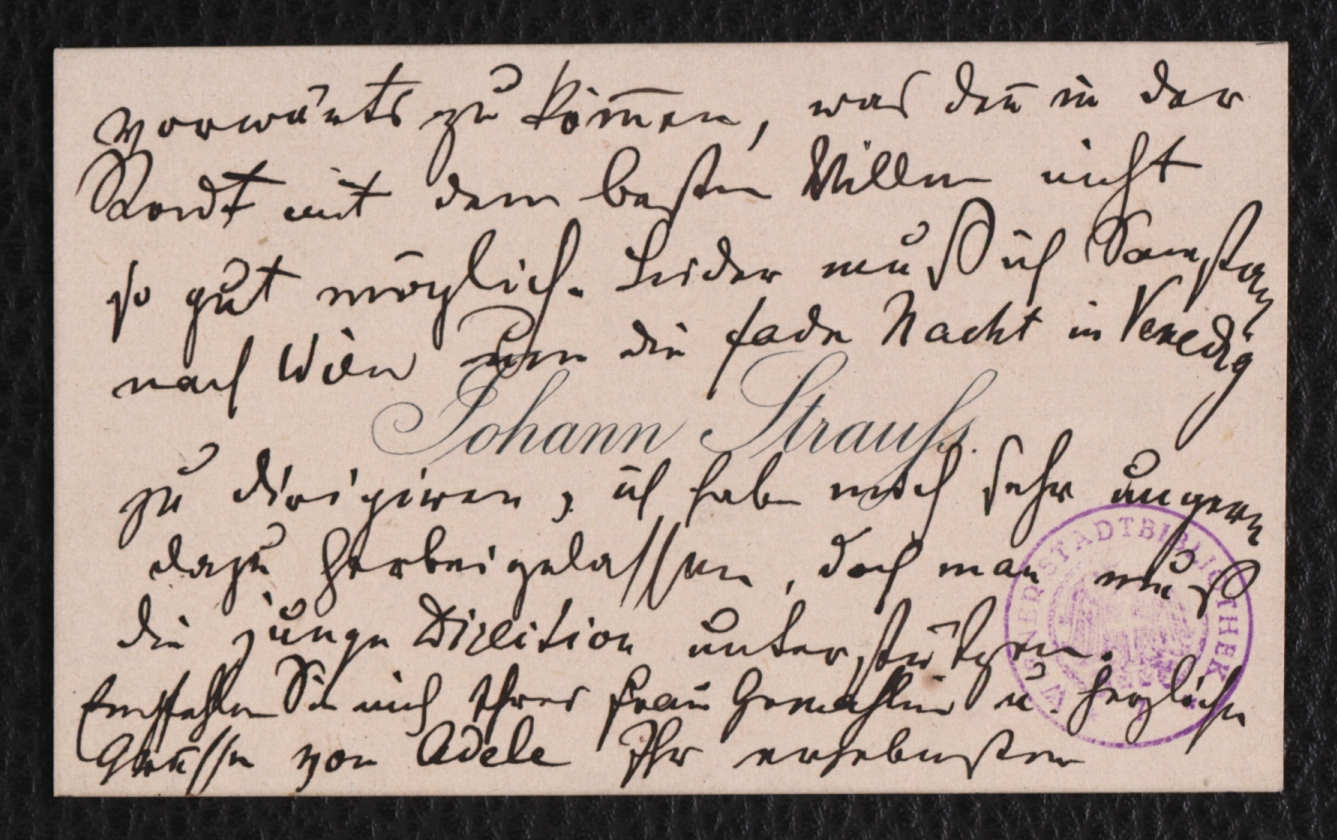 vorwärts zu kom̄en, was den̄ in der
Stadt mit dem besten Willen nicht
so gut möglich. Leider muß ich Samstag
nach Wien um die fade Nacht in Venedig
Johann Strauss.
zu dirigiren, ich habe mich sehr ungern
dazu herbeigelassen, doch man muß
die junge Direktion unterstützen.
Empfehlen Sie mich Ihrer Frau Gemahlin u. herzliche
Grüsse von Adele Ihr ergebenster
WIENER STADTBIBLIOTHEK